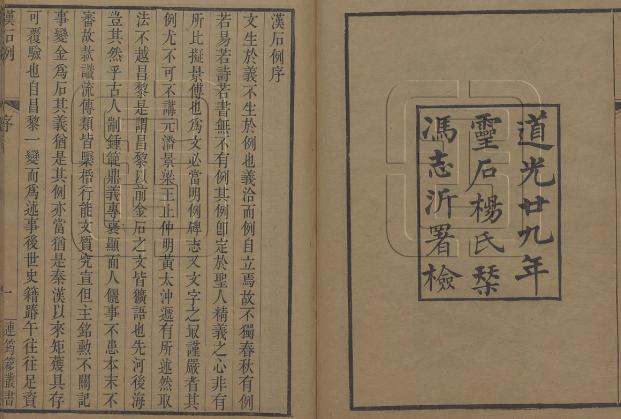 道光廿九年
靈石楊氏琹
馮志沂署檢
漢石例序
文生於義不生於例也義洽而例自立焉故不獨春秋有例
若易若詩若書無不有例其例卽定於聖人精義之心非有
所比擬景傅也爲文必當明例碑志又文字之㝡謹嚴者其
例尤不可不講元潘景梁王止仲明黃太沖遞有所述然取
法不越昌黎是謂昌黎以前金石之文皆獷語也先河後海
豈其然乎古人制鍾範鼎義專襃顯而人儷事不患本末不
審故款識流傳類皆槩帶行能文質究宣但主銘勲不關記
事變金爲石其義猶是其例亦當猶是秦漢以來矩矱具存
可覆驗也自昌黎一變而爲述事後世史籍踳午往往足資
漢石例
序
一
連筠簃叢書